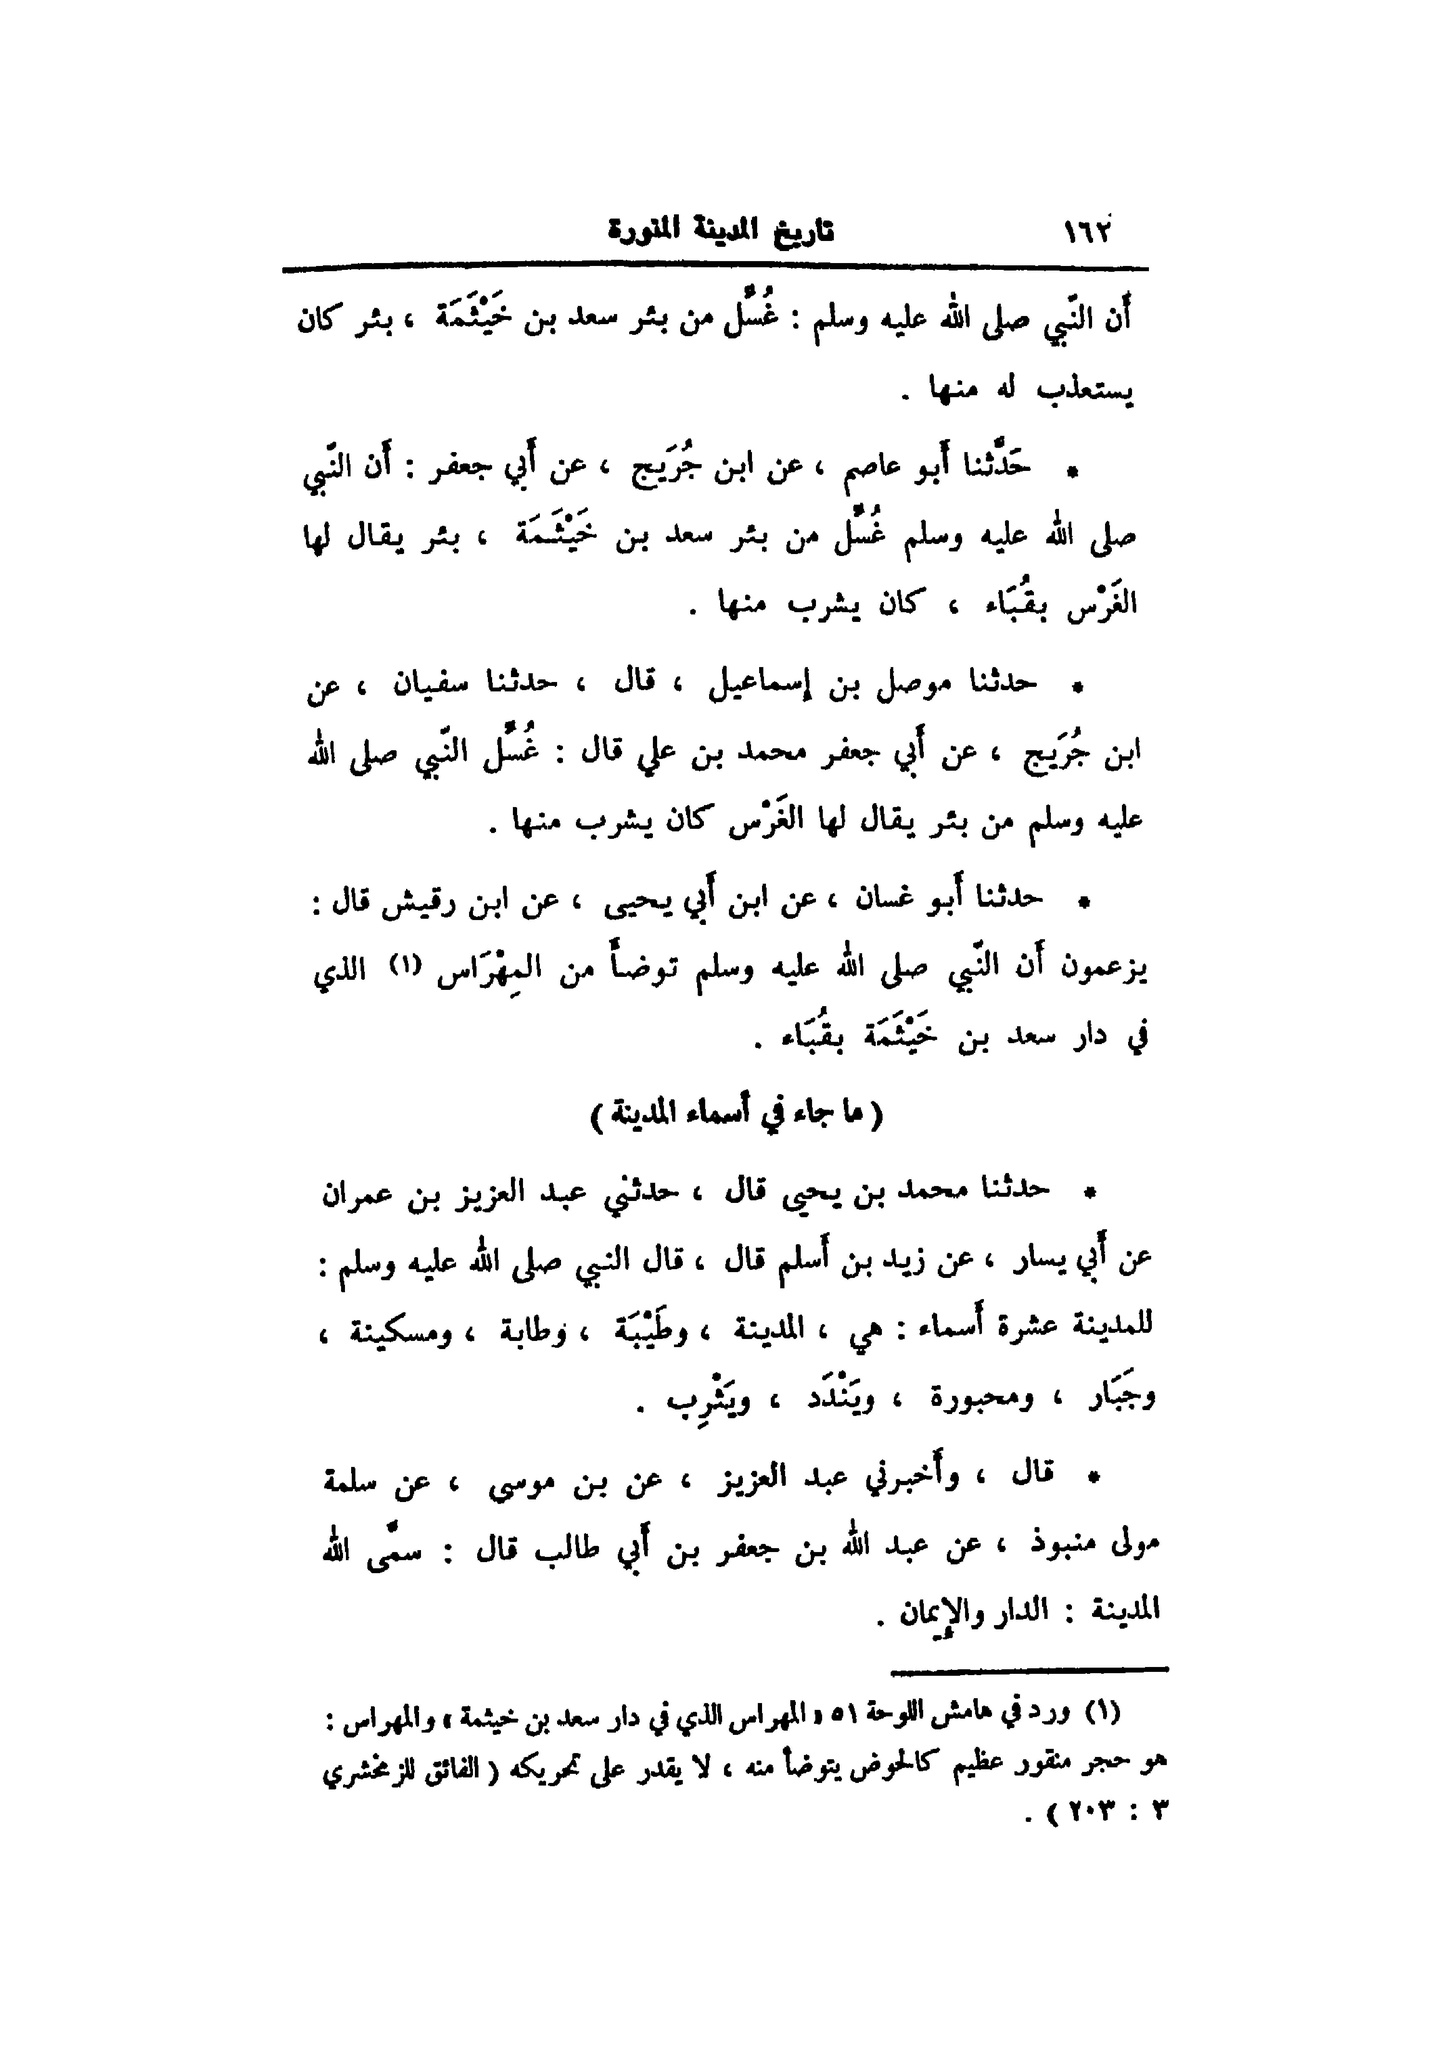 ١٦٢
تاريخ المدينة المنورة
أَن النّبي صلى الله عليه وسلم : غُسِّل من بئر سعد بن خَيْثَمَة ، بئر كان
يستعذب له منها .
* حَدَّثنا أَبو عاصم ، عن ابن جُرَيج ، عن أَبي جعفر : أَن النّبي
صلى الله عليه وسلم غُسِّل من بئر سعد بن خَيْثَمَة ، بئر يقال لها
الغَرْس بقُبَاء ، كان يشرب منها .
* حدثنا موصل بن إسماعيل ، قال ، حدثنا سفيان ، عن
ابن جُرَيج ، عن أَبي جعفر محمد بن علي قال : غُسِّل النّبي صلى الله
عليه وسلم من بئر يقال لها الغَرْس كان يشرب منها .
* حدثنا أَبو غسان ، عن ابن أَبي يحيى ، عن ابن رقيش قال :
يزعمون أَن النّبي صلى الله عليه وسلم توضأَ من المِهْرَاس (١) الذي
في دار سعد بن خَيْثَمَة بقُبَاء .
( ما جاء في أسماء المدينة )
* حدثنا محمد بن يحيى قال ، حدثني عبد العزيز بن عمران
عن أَبي يسار ، عن زيد بن أَسلم قال ، قال النبي صلى الله عليه وسلم :
للمدينة عشرة أَسماء : هي ، المدينة ، وطَيْبَة ، وطابة ، ومسكينة ،
وجَبَار ، ومحبورة ، ويَنْدَد ، ويَثْرِب .
* قال ، وأَخبرني عبد العزيز ، عن بن موسى ، عن سلمة
مولى منبوذ ، عن عبد الله بن جعفر بن أَبي طالب قال : سمَّى الله
المدينة : الدار والإِيمان .
(١) ورد في هامش اللوحة ٥١ « المهراس الذي في دار سعد بن خيثمة » والمهراس :
هو حجر منقور عظيم كالحوض يتوضأ منه ، لا يقدر على تحريكه ( الفائق للزمخشري
٣ : ٢٠٣ ) .